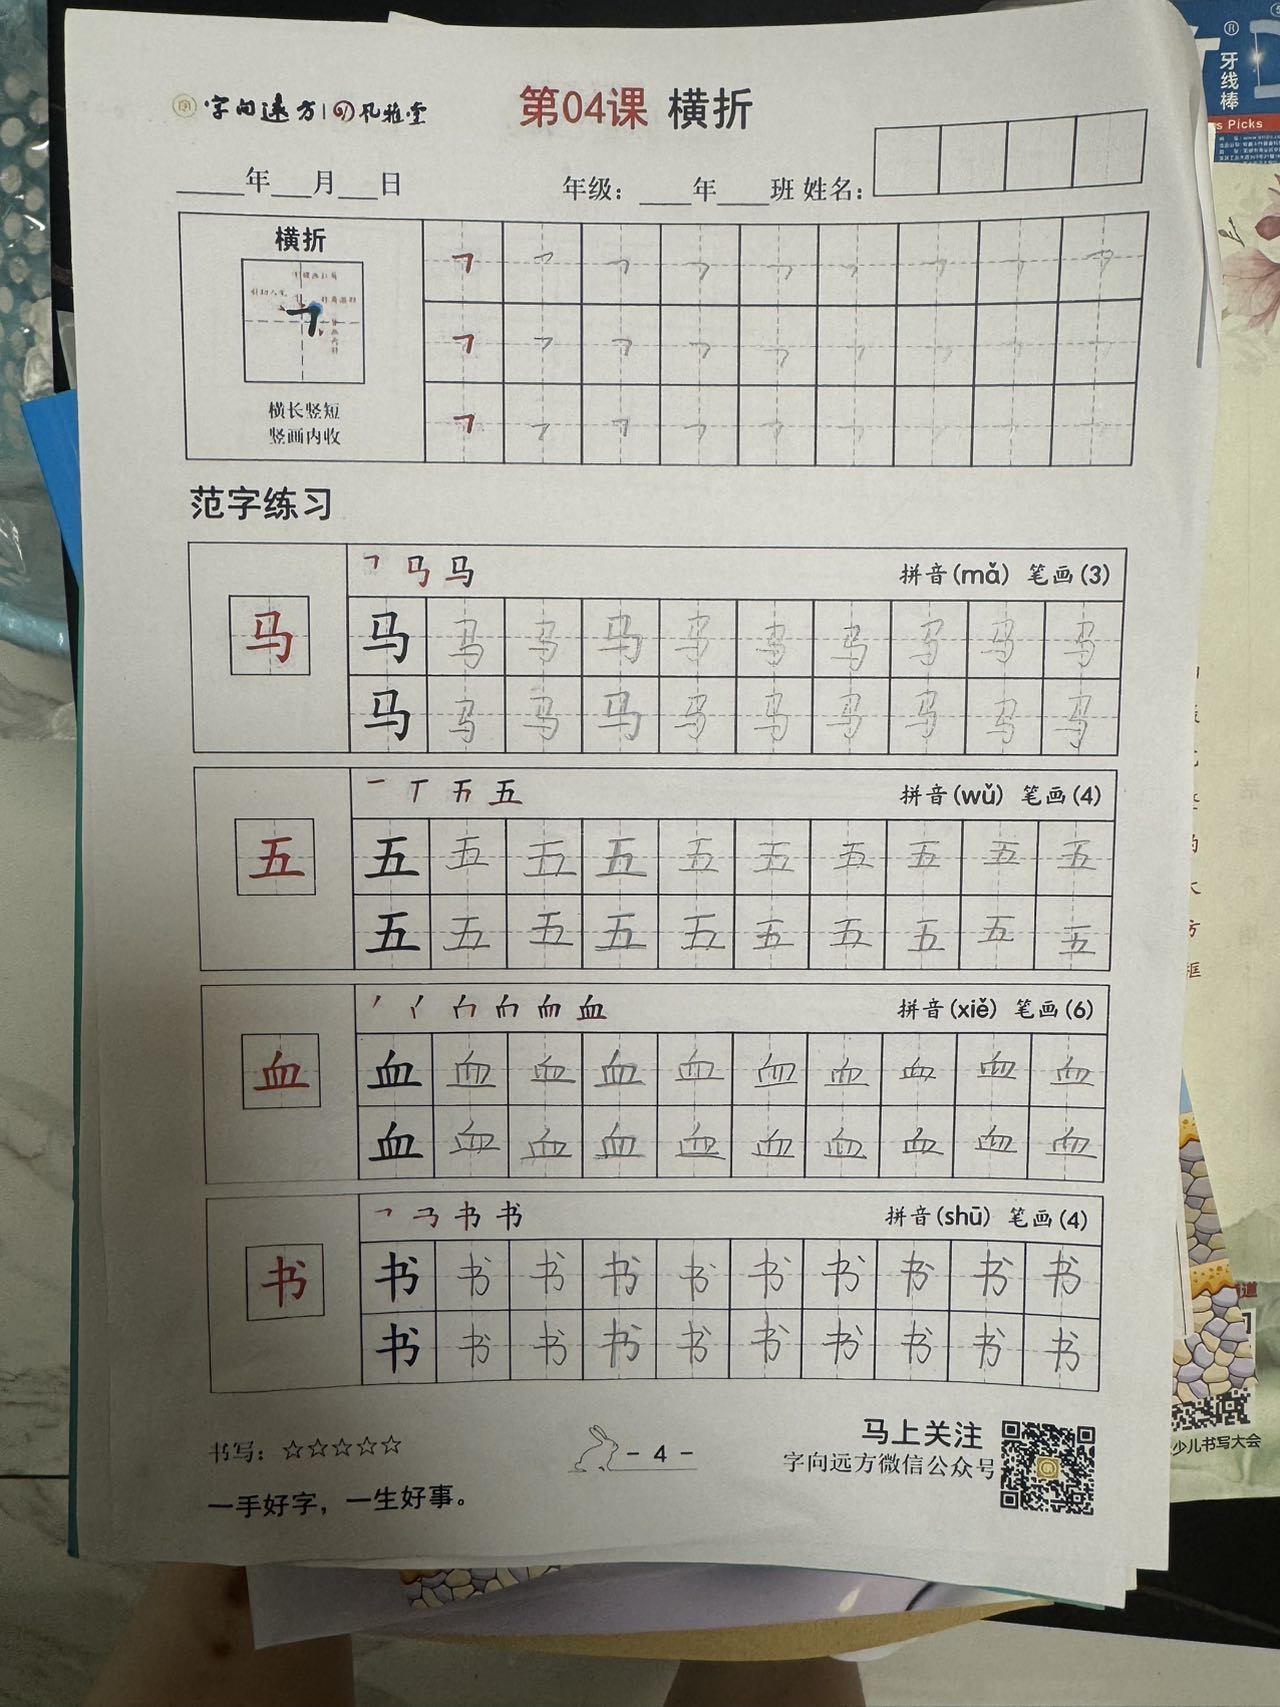 字向远方 孔雅堂
第04课 横折
年 月 日
年级： 年 班 姓名：
横折
横长竖短
竖画内收
范字练习
马 马
拼音(mǎ) 笔画(3)
马
马 马 马 马 马 马 马 马 马 马
马 马 马 马 马 马 马 马 马 马
五
拼音(wǔ) 笔画(4)
五
五 五 五 五 五 五 五 五 五 五
五 五 五 五 五 五 五 五 五 五
血
拼音(xiě) 笔画(6)
血
血 血 血 血 血 血 血 血 血 血
血 血 血 血 血 血 血 血 血 血
书 书
拼音(shū) 笔画(4)
书
书 书 书 书 书 书 书 书 书 书
书 书 书 书 书 书 书 书 书 书
书写：☆☆☆☆☆
- 4 -
马上关注
字向远方微信公众号
一手好字，一生好事。
牙线棒
s Picks
少儿书写大会